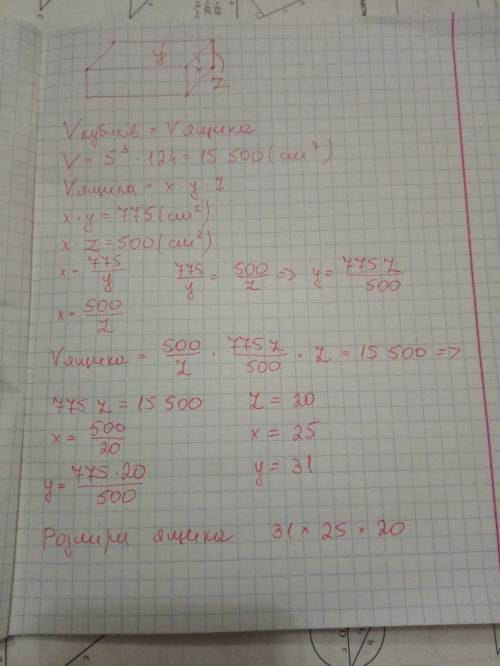 y
x
z
Vкубиків = Vящика
V = 5³ · 124 = 15 500 (см³)
Vящика = x · y · z
x · y = 775 (см²)
x · z = 500 (см²)
x = 775/y    775/y = 500/z => y = 775z/500
x = 500/z
Vящика = 500/z · 775z/500 · z = 15 500 =>
775 z = 15 500    z = 20
x = 500/20    x = 25
y = 775·20/500    y = 31
Розміри ящика    31 × 25 × 20